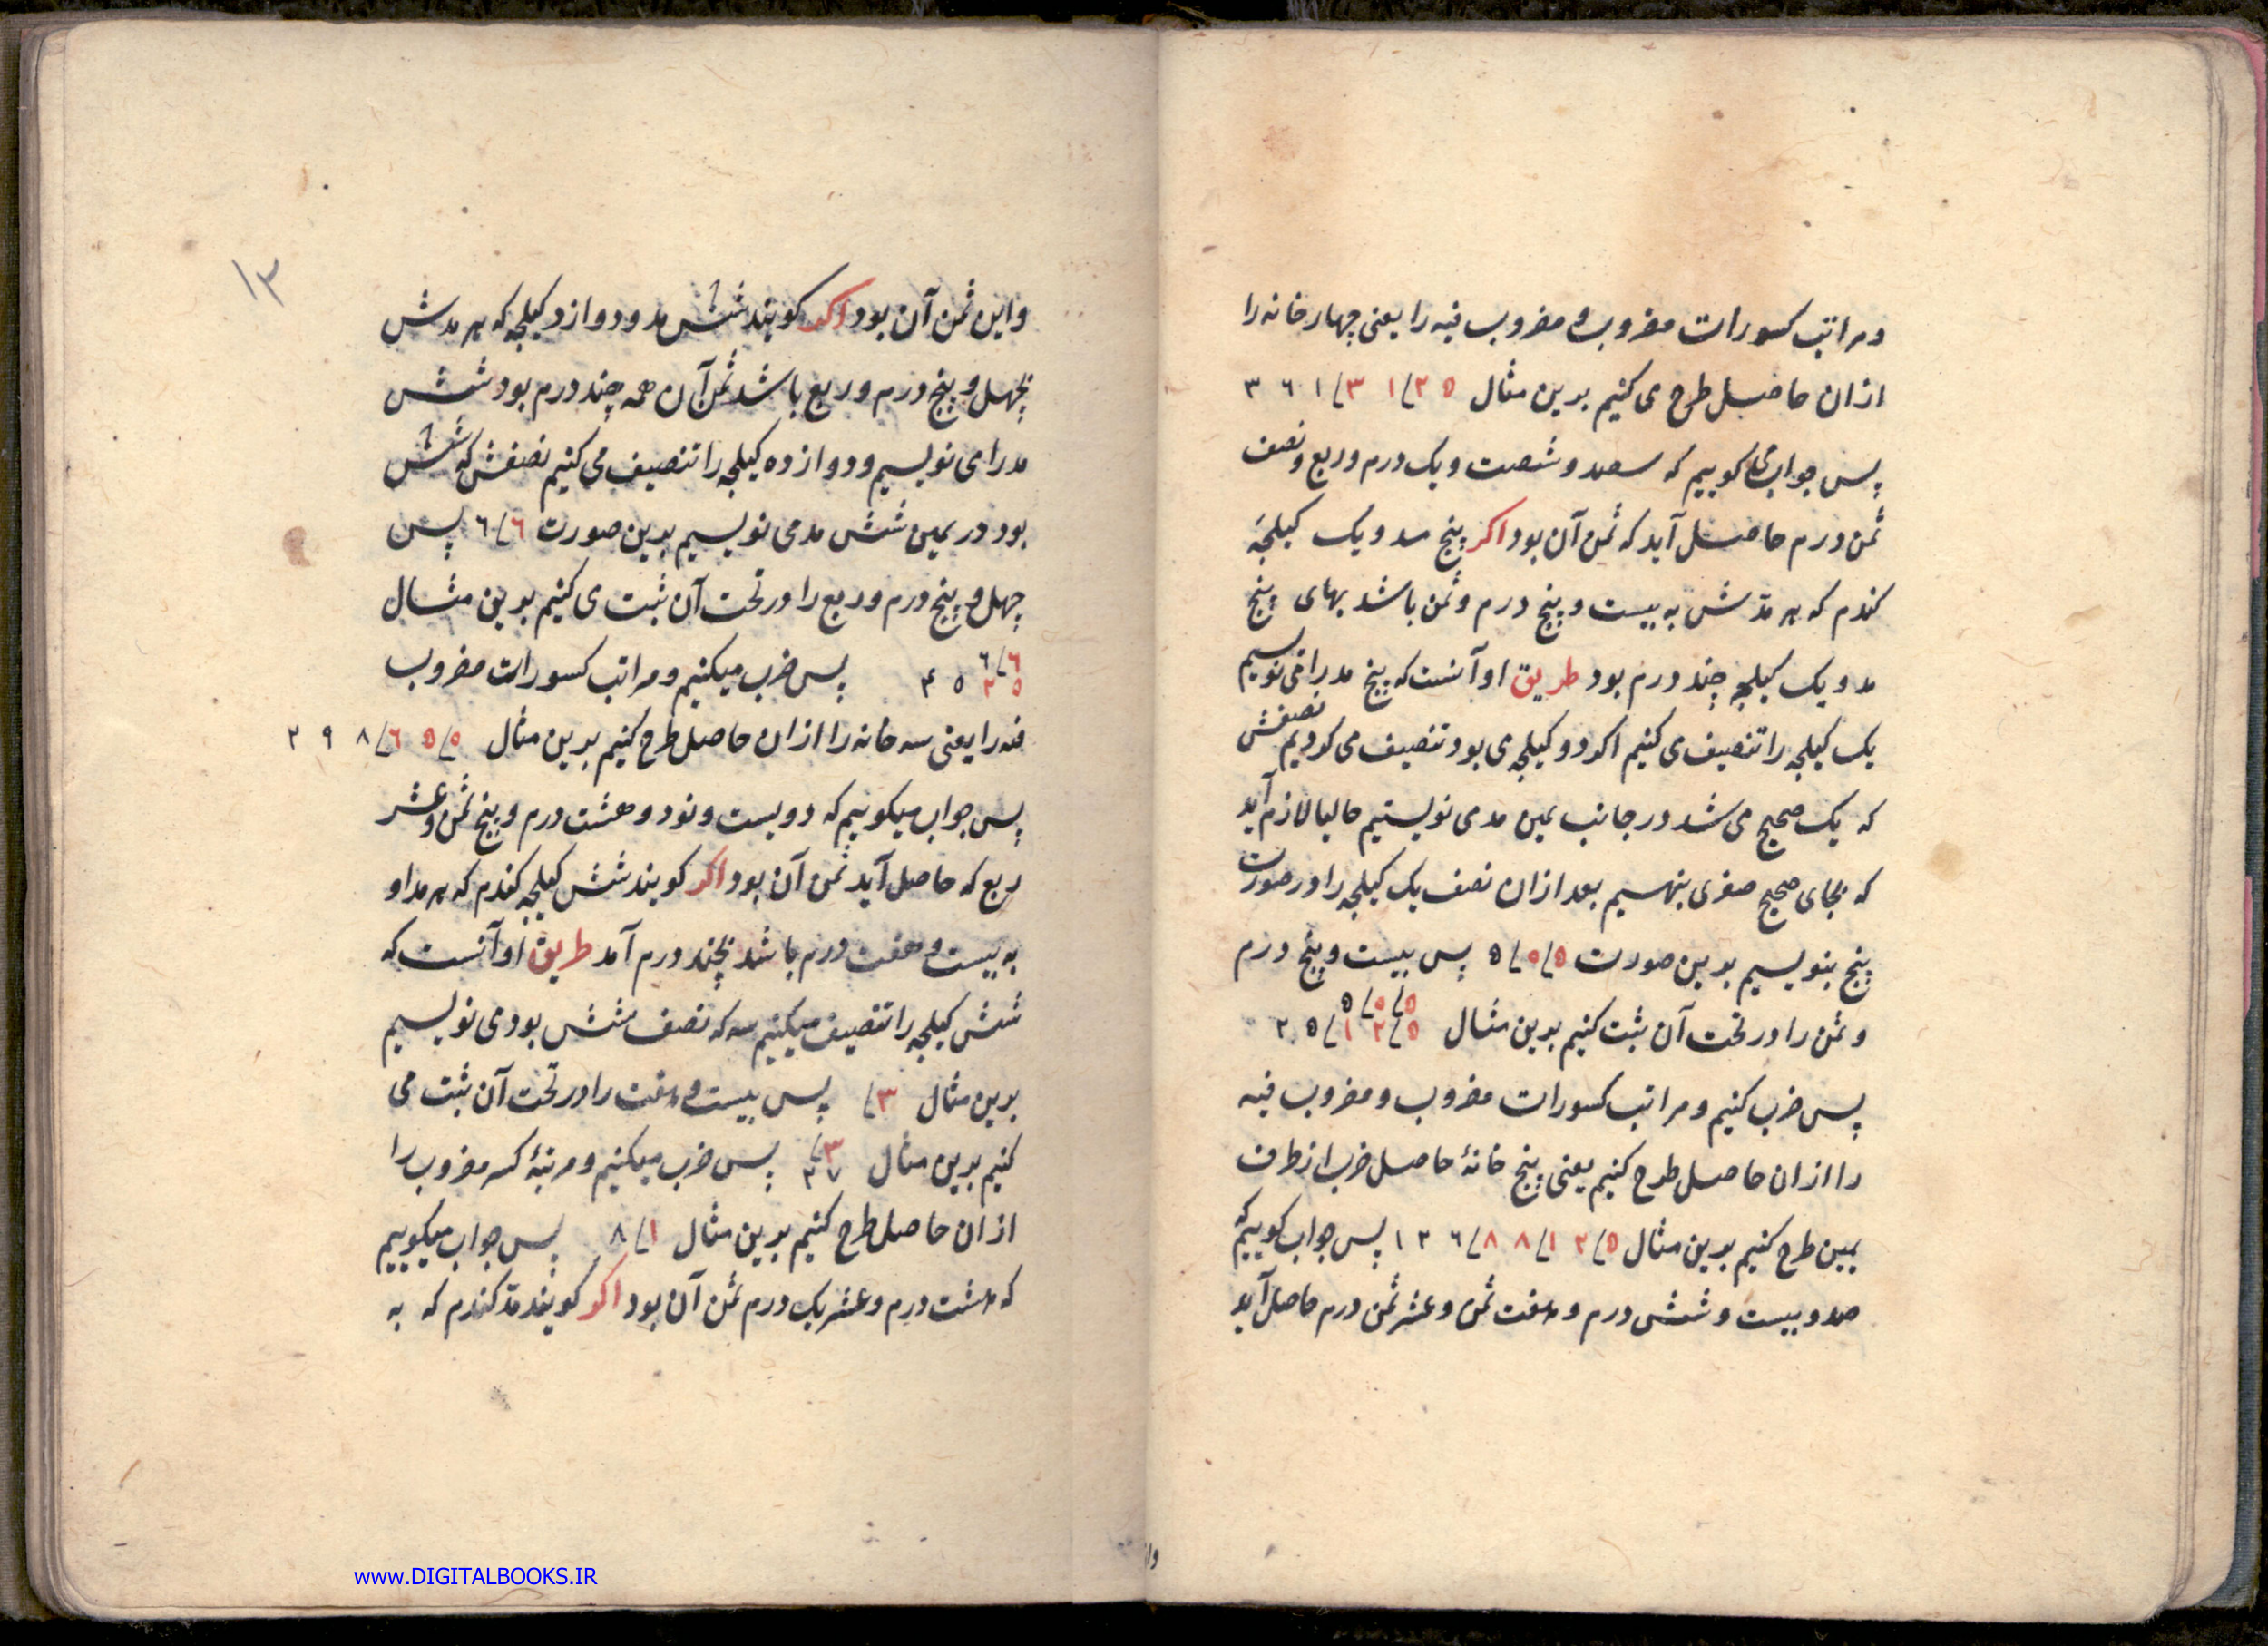 ومراتب کسورات مضروب و مضروب فیه را یعنی چهار خانه را
ازان حاصل طرح می کنیم بدین مثال ۳۶۱/۳۱/۲۵
پس جواب می کوییم که سصد و شصت و یک درم و ربع و نصف
ثمن درم حاصل آید که ثمن آن بود اکر پنج مد و یک کیلجهٔ
کندم که هر مدّش به بیست و پنج درم و ثمن باشد بهای پنج
مد و یک کیلجه چند درم بود طریق او آنست که پنج مد را می نویسیم
یک کیلجه را تنصیف می کنیم اکر دو کیلجه می بود تنصیف می کردیم نصفش
که یک صحیح می شد در جانب یمین مد می نوشتیم حالیا لازم آید
که بجای صحیح صفری بنهیم بعد ازان نصف یک کیلجه را در صورت
پنج بنویسیم بدین صورت ۵/۰/۵ پس بیست و پنج درم
و ثمن را در تحت آن ثبت کنیم بدین مثال ۵/۰/۵ ۲۵/۱۲/۵
پس ضرب کنیم و مراتب کسورات مضروب و مضروب فیه
را ازان حاصل طرح کنیم یعنی پنج خانهٔ حاصل ضرب از طرف
یمین طرح کنیم بدین مثال ۱۲۶/۸۸/۱۲/۵ پس جواب کوییم که
صد و بیست و شش درم و هفت ثمن و عشر ثمن درم حاصل آید
وا
۱۳
و این ثمن آن بود اکر کویند شش مد و دوازد کیلجه که هر مدش
بچهل و پنج درم و ربع باشد ثمن آن همه چند درم بود شش
مد را می نویسیم و دوازده کیلجه را تنصیف می کنیم نصفش که شش
بود در یمین شش مد می نویسیم بدین صورت ۶/۶ پس
چهل و پنج درم و ربع را در تحت آن ثبت می کنیم بدین مثال
۶/۶ ۴۵ ۲۵ پس ضرب میکنیم و مراتب کسورات مضروب
فیه را یعنی سه خانه را ازان حاصل طرح کنیم بدین مثال ۲۹۸/۶۵/۵
پس جواب میکوییم که دویست و نود و هشت درم و پنج ثمن و عشر
ربع که حاصل آید ثمن آن بود اکر کویند شش کیلجه کندم که هر مد او
به بیست و هفت درم باشد بچند درم آمد طریق او آنست که
شش کیلجه را تنصیف میکنیم سه که نصف شش بود می نویسیم
بدین مثال /۳ پس بیست و هفت را در تحت آن ثبت می
کنیم بدین مثال /۳ ۲۷ پس ضرب میکنیم و مرتبهٔ کسر مضروب را
ازان حاصل طرح کنیم بدین مثال ۸/۱ پس جواب میکوییم
که هشت درم و عشر یک درم ثمن آن بود اکر کویند مدّ کندم که به
www.DIGITALBOOKS.IR